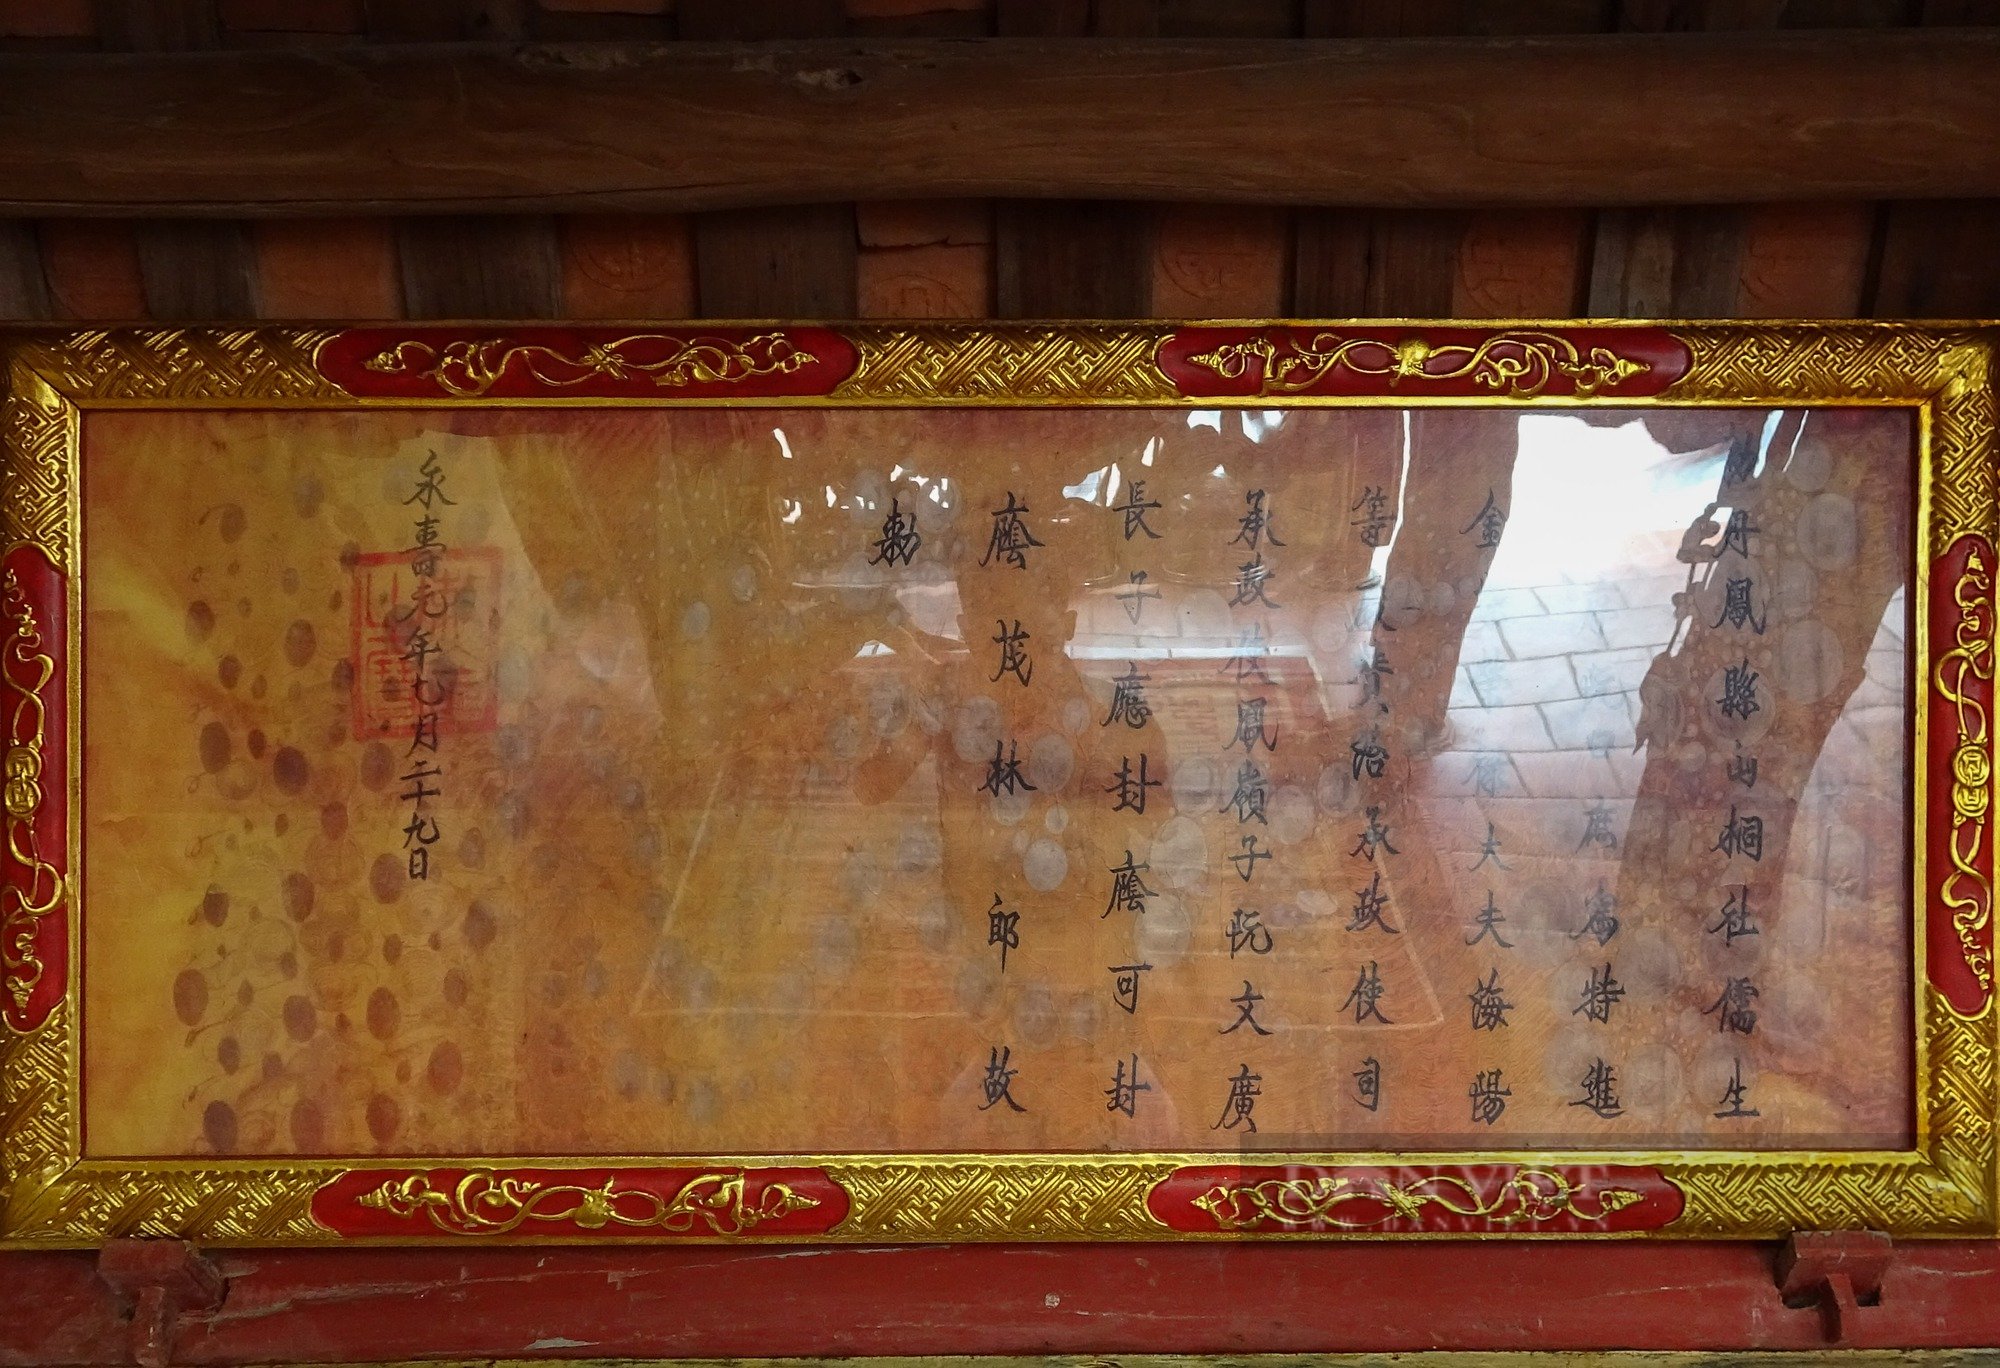 勅丹鳳縣山桐社儒生
庶為特進
金祿大夫海陽
等賛治承政使司
承政使鳳嶺子阮文廣
長子應封廕可封
廕茂林郎故
勅
永壽元年七月二十九日
DANVIET